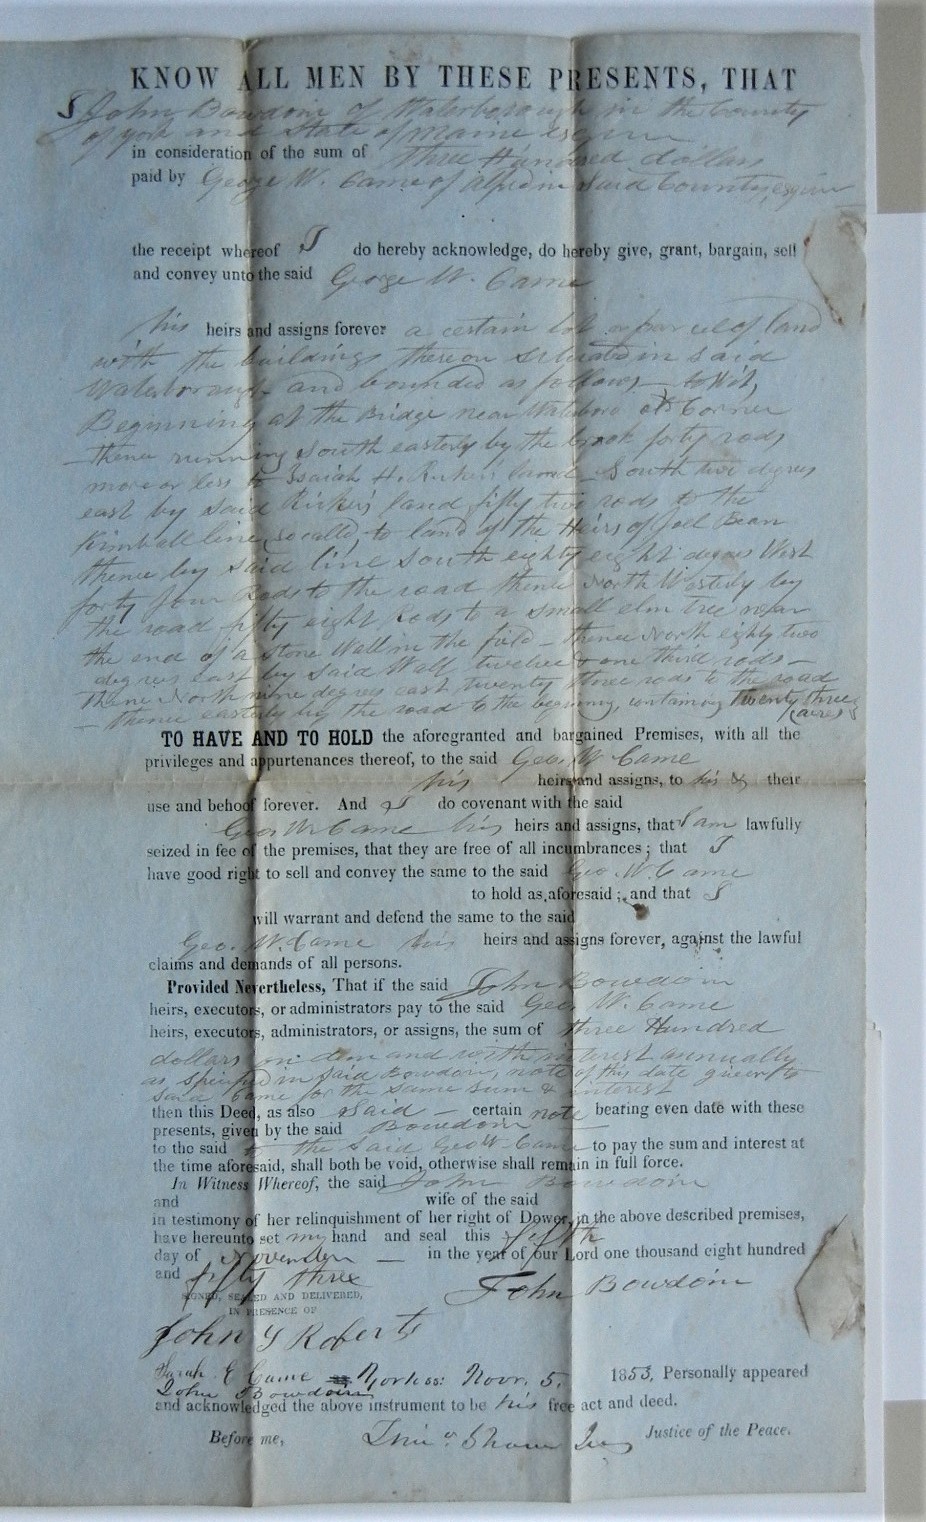 KNOW ALL MEN BY THESE PRESENTS, THAT
I John Bowdoin of Waterborough in the County
of york and State of Maine
in consideration of the sum of three Hundred dollars
paid by George W. Came of Alfred in Said County,
the receipt whereof I do hereby acknowledge, do hereby give, grant, bargain, sell
and convey unto the said George W. Came
his heirs and assigns forever a certain lot or parcel of land
with the buildings thereon situated in said
Waterborough and bounded as follows to Wit,
Beginning at the Bridge near Waterboro old Corner
thence running South easterly by the brook forty rods
more or less to Isaiah H. Ricker's land South two degrees
east by said Ricker's land fifty two rods to the
Kimball line, so called, to land of the Heirs of Joel Bean
thence by said line South eighty eight degrees West
forty four Rods to the road thence North Westerly by
the road fifty eight Rods to a small elm tree near
the end of a Stone Wall in the field - thence North eighty two
degrees east by said Wall twelve & one third rods -
thence North nine degrees east twenty three rods to the road
- thence easterly by the road to the beginning, containing twenty three
acres
TO HAVE AND TO HOLD the aforegranted and bargained Premises, with all the
privileges and appurtenances thereof, to the said Geo. W Came
his heirs and assigns, to his & their
use and behoof forever. And I do covenant with the said
Geo W Came his heirs and assigns, that I am lawfully
seized in fee of the premises, that they are free of all incumbrances; that I
have good right to sell and convey the same to the said Geo. W. Came
to hold as aforesaid; and that I
will warrant and defend the same to the said
Geo. W. Came his heirs and assigns forever, against the lawful
claims and demands of all persons.
Provided Nevertheless, That if the said John Bowdoin
heirs, executors, or administrators pay to the said Geo W. Came
heirs, executors, administrators, or assigns, the sum of three Hundred
dollars on demand with interest annually
as specified in said Bowdoin, note of this date given to
said Came for the same sum & interest
then this Deed, as also Said - certain note bearing even date with these
presents, given by the said Bowdoin
to the said to the said Geo W Came to pay the sum and interest at
the time aforesaid, shall both be void, otherwise shall remain in full force.
In Witness Whereof, the said John Bowdoin
and wife of the said
in testimony of her relinquishment of her right of Dower, in the above described premises,
have hereunto set my hand and seal this fifth
day of November - in the year of our Lord one thousand eight hundred
and fifty three
SIGNED, SEALED AND DELIVERED,
IN PRESENCE OF
John Bowdoin
John Roberts
Sarah E Came York ss: Novr. 5. 1853, Personally appeared
John Bowdoin
and acknowledged the above instrument to be his free act and deed.
Before me, Justice of the Peace.